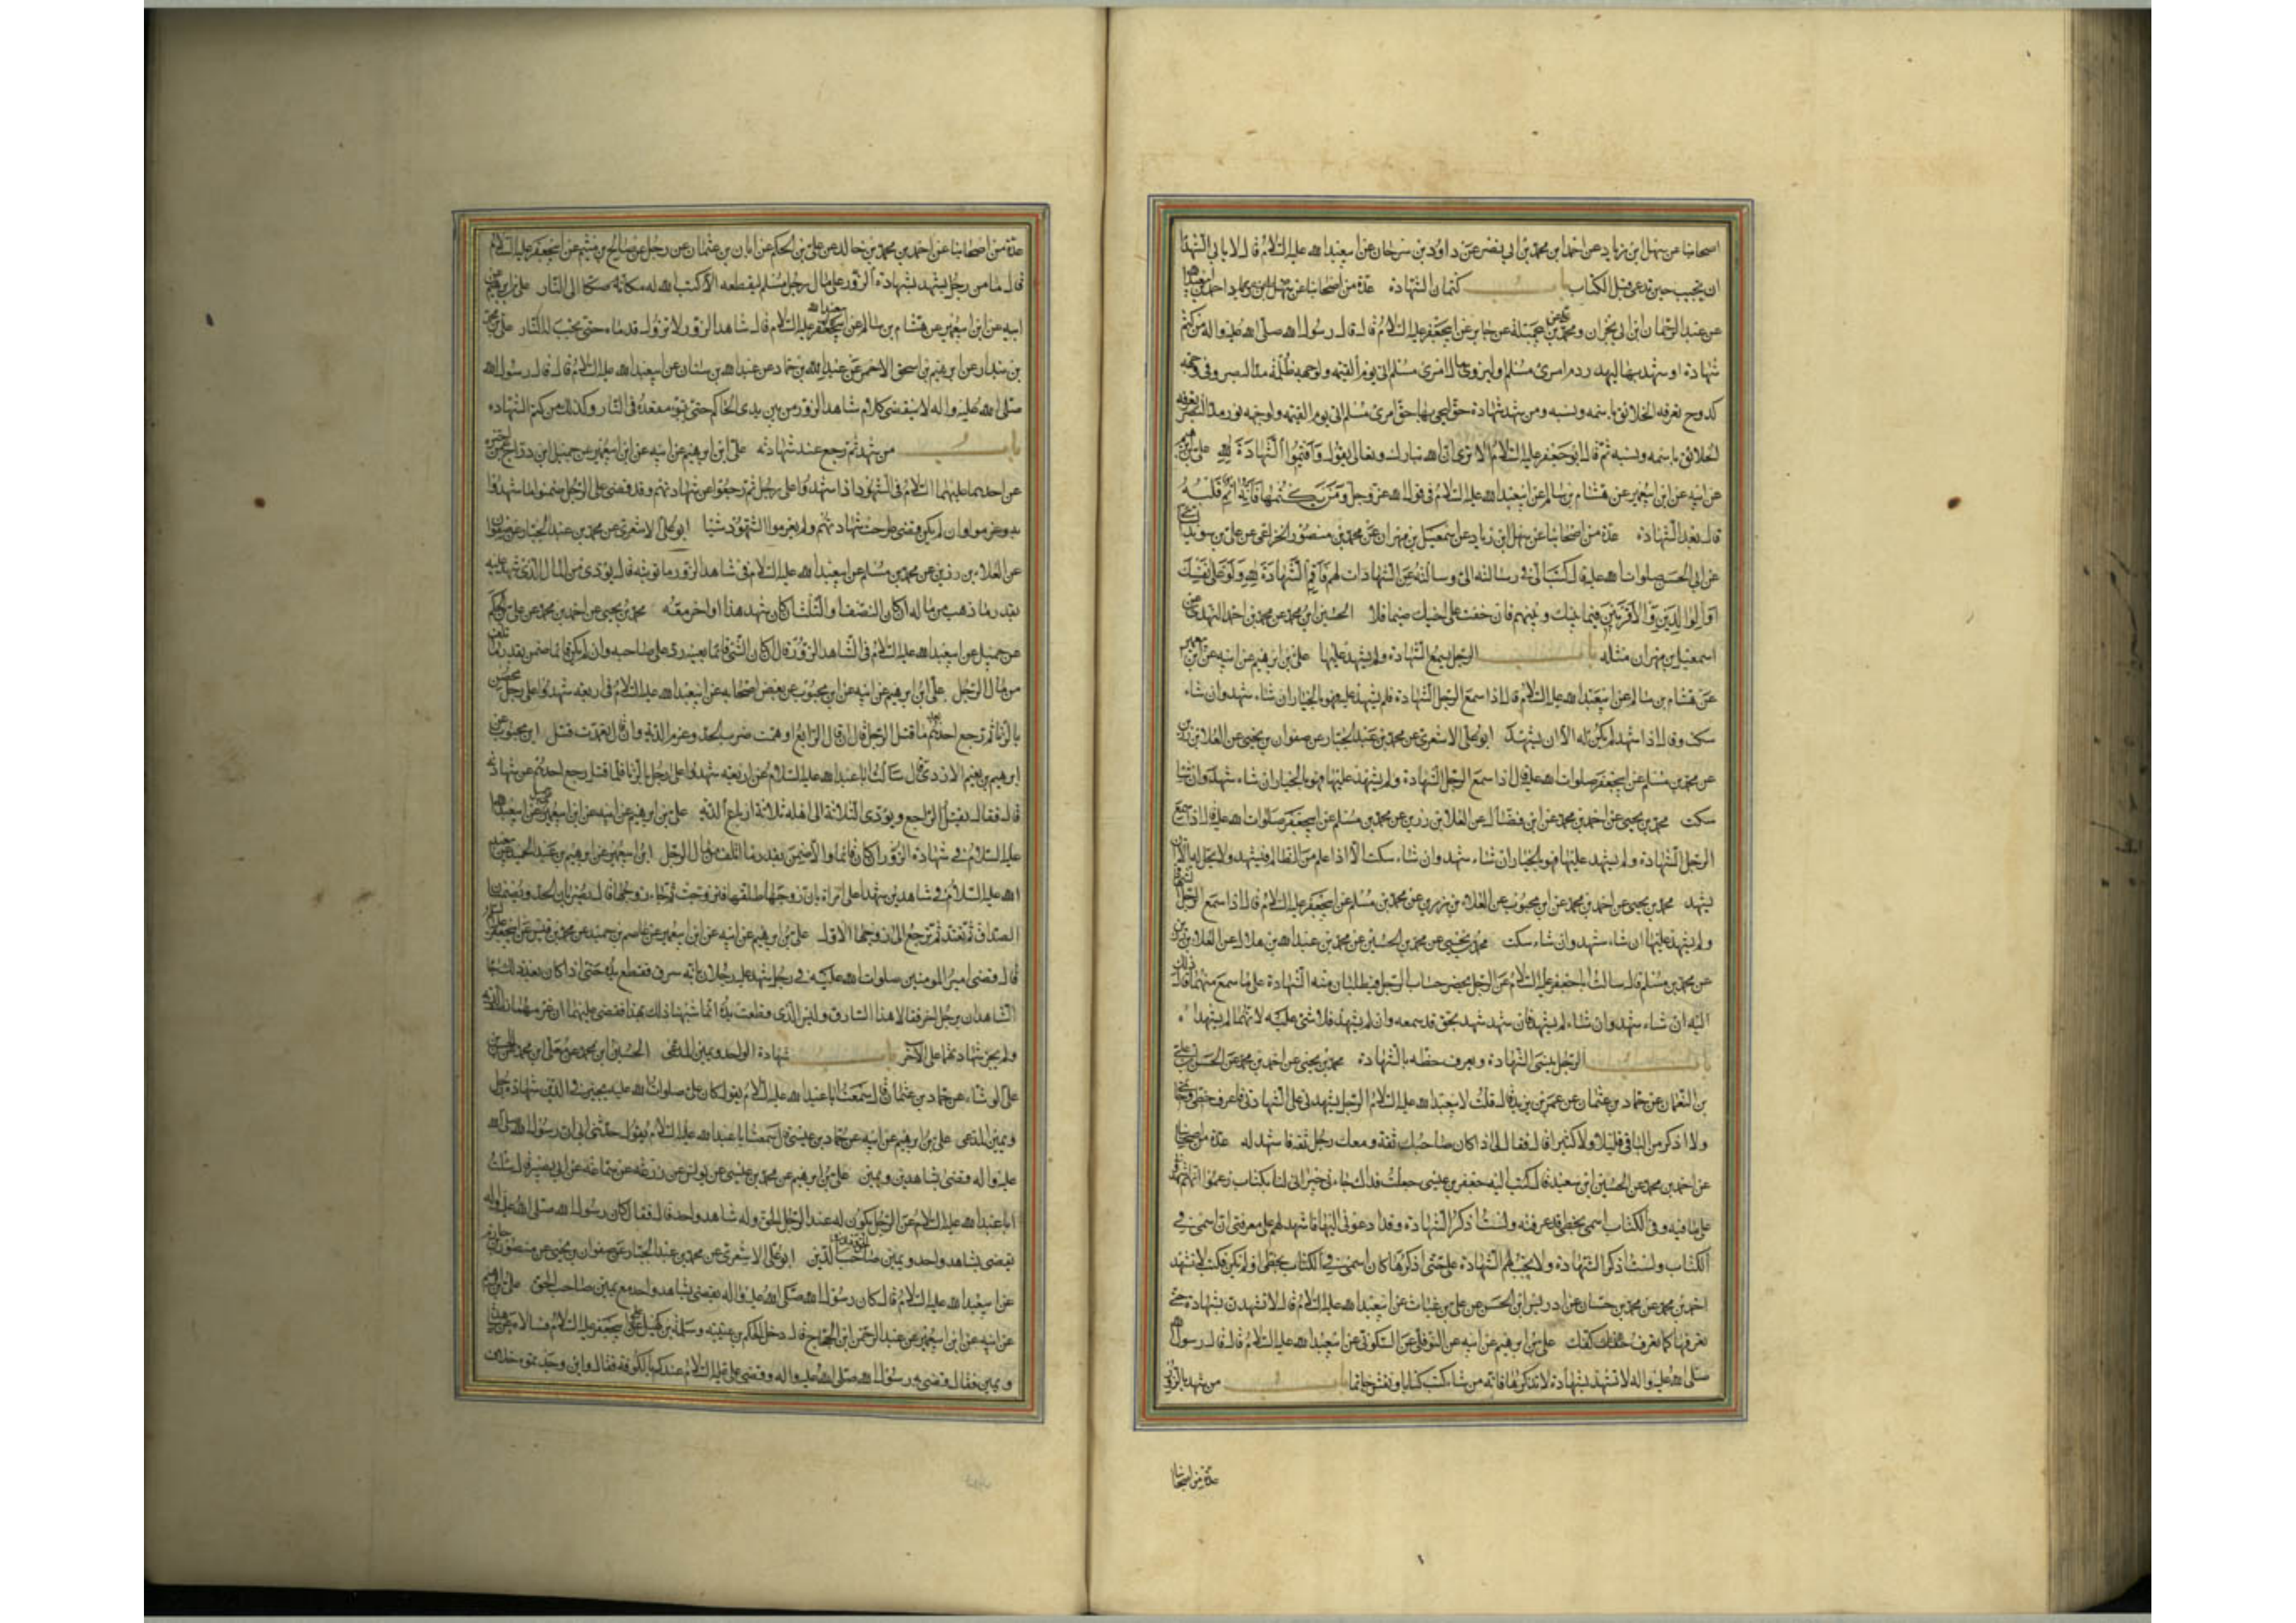 اصحابنا عن سهل ابن زياد عن احمد ابن محمد بن ابى نصر عن داود بن سرحان عن ابيعبدالله عليه السلام قال لا يابى الشهدا
ان تجيب حين تدعى قبل الكتاب باب كتمان الشهادة عدة من اصحابنا عن سهل ابن زياد
عن عبدالرحمان ابن ابى نجران ومحمد بن على عن ابى جميلة عن جابر عن ابيجعفر عليه السلام قال قال رسول الله صلى الله عليه واله من كتم
شهادة او شهد بها ليهدر دم امرئ مسلم او ليزوى مال امرئ مسلم اتى يوم القيمة ولوجهه ظلمة مد البصر وفى وجهه
كدوح تعرفه الخلائق باسمه ونسبه ومن شهد شهادة حق ليحيى بها حق امرئ مسلم اتى يوم القيمة ولوجهه نور مد البصر تعرفه
الخلائق باسمه ونسبه ثم قال ابوجعفر عليه السلام الا ترى ان الله تبارك وتعالى يقول واقيموا الشهادة لله على بن ابرهيم
عن ابيه عن ابن ابيعمير عن هشام بن سالم عن ابيعبدالله عليه السلام فى قول الله عز وجل ومن يكتمها فانه اثم قلبه
قال بعد الشهادة عدة من اصحابنا عن سهل ابن زياد عن اسمعيل بن مهران عن محمد بن منصور الخزاعى عن على بن سويد
عن ابى الحسن صلوات الله عليه قال كتب الى فى رسالته الى وسالته عن الشهادات لهم فاقم الشهادة لله ولو على نفسك
او الوالدين والاقربين فيما بينك وبينهم فان خفت على اخيك ضيما فلا الحسين ابن محمد عن محمد بن احمد النهدى عن
اسمعيل بن مهران مثله باب الرجل يسمع الشهادة ولم يشهد عليها على بن ابرهيم عن ابيه عن ابن ابيعمير
عن هشام بن سالم عن ابيعبدالله عليه السلام قال اذا سمع الرجل الشهادة فلم يشهد عليها فهو بالخيار ان شاء شهد وان شاء
سكت وقال اذا اشهد لم يكن له الا ان يشهد ابوعلى الاشعرى عن محمد بن عبدالجبار عن صفوان بن يحيى عن العلا بن رزين
عن محمد بن مسلم عن ابيجعفر صلوات الله عليه قال اذا سمع الرجل الشهادة ولم يشهد عليها فهو بالخيار ان شاء شهد وان شاء
سكت محمد بن يحيى عن احمد بن محمد عن ابن فضال عن العلا بن رزين عن محمد بن مسلم عن ابيجعفر صلوات الله عليه قال اذا سمع
الرجل الشهادة ولم يشهد عليها فهو بالخيار ان شاء شهد وان شاء سكت الا اذا علم من الظالم فيشهد ولا يحل له الا ان
يشهد محمد بن يحيى عن احمد بن محمد عن ابن محبوب عن العلاء بن رزين عن محمد بن مسلم عن ابيجعفر عليه السلام قال اذا سمع الرجل الشهادة
ولم يشهد عليها ان شاء شهد وان شاء سكت محمد بن يحيى عن محمد بن الحسين عن محمد بن عبدالله بن هلال عن العلا بن رزين
عن محمد بن مسلم قال سالت اباجعفر عليه السلام عن الرجل يحضر حساب الرجلين فيطلبان منه الشهادة على ما سمع منهما قال ذلك
اليه ان شاء شهد وان شاء لم يشهد فان شهد شهد بحق قد سمعه وان لم يشهد فلا شئ عليه لانهما لم يشهداه
باب الرجل ينسى الشهادة ويعرف خطه بالشهادة محمد بن يحيى عن احمد بن محمد عن الحسن بن على
بن النعمان عن حماد بن عثمان عن عمر بن يزيد قال قلت لابيعبدالله عليه السلام الرجل يشهدنى على الشهادة فاعرف خطى وخاتمى
ولا اذكر من الباقى قليلا ولا كثيرا قال فقال لى اذا كان صاحبك ثقة ومعك رجل ثقة فاشهد له عدة من اصحابنا
عن احمد بن محمد عن الحسين ابن سعيد قال كتب اليه جعفر بن عيسى جعلت فداك جاءنى جيران لنا بكتاب زعموا انهم اشهدونى
على ما فيه وفى الكتاب اسمى بخطى قد عرفته ولست اذكر الشهادة وقد دعونى اليها فاشهد لهم على معرفتى ان اسمى فى
الكتاب ولست اذكر الشهادة ولا تجب لهم الشهادة على حتى اذكرها كان اسمى فى الكتاب بخطى او لم يكن فكتب لا تشهد
احمد بن محمد عن محمد بن حسان عن ادريس ابن الحسن عن على بن غياث عن ابيعبدالله عليه السلام قال لا تشهدن بشهادة حتى
تعرفها كما تعرف كفك على بن ابرهيم عن ابيه عن النوفلى عن السكونى عن ابيعبدالله عليه السلام قال قال رسول الله
صلى الله عليه واله لا تشهد بشهادة لا تذكرها فانه من شاء كتب كتابا ونقش خاتما باب من شهد بالزور
عدة من اصحابنا
عدة من اصحابنا عن احمد بن محمد بن خالد عن على بن الحكم عن ابان بن عثمان عن رجل عن صالح بن ميثم عن ابيجعفر عليه السلام
قال ما من رجل يشهد بشهادة الزور على مال رجل مسلم ليقطعه الا كتب الله له مكانه صكا الى النار على بن ابرهيم عن
ابيه عن ابن ابيعمير عن هشام بن سالم عن ابيعبدالله عليه السلام قال شاهد الزور لا تزول قدماه حتى تجب له النار على بن محمد
بن بندار عن ابرهيم بن اسحق الاحمر عن عبدالله بن حماد عن عبدالله بن سنان عن ابيعبدالله عليه السلام قال قال رسول الله
صلى الله عليه واله لا ينقضى كلام شاهد الزور من بين يدى الحاكم حتى يتبوء مقعده فى النار وكذلك من كتم الشهادة
باب من شهد ثم رجع عن شهادته على ابن ابرهيم عن ابيه عن ابن ابيعمير عن جميل ابن دراج عمن اخبره
عن احدهما عليهما السلام فى الشهود اذا شهدوا على رجل ثم رجعوا عن شهادتهم وقد قضى على الرجل ضمنوا ما شهدوا
به وغرموا وان لم يكن قضى طرحت شهادتهم ولم يغرموا الشهود شيئا ابوعلى الاشعرى عن محمد بن عبدالجبار عن صفوان
عن العلاء بن رزين عن محمد بن مسلم عن ابيعبدالله عليه السلام فى شاهد الزور ما توبته قال يؤدى من المال الذى شهد عليه
بقدر ما ذهب من ماله ان كان النصف او الثلث ان كان شهد هذا واخر معه محمد بن يحيى عن احمد بن محمد عن على بن الحكم
عن جميل عن ابيعبدالله عليه السلام فى الشاهد الزور قال ان كان الشئ قائما بعينه رد على صاحبه وان لم يكن قائما ضمن بقدر ما اتلف
من مال الرجل على ابن ابرهيم عن ابيه عن ابن محبوب عن بعض اصحابه عن ابيعبدالله عليه السلام فى اربعة شهدوا على رجل محصن
بالزنا ثم رجع احدهم بعد ما قتل الرجل قال ان قال الرابع اوهمت ضرب الحد وغرم الدية وان قال تعمدت قتل ابن محبوب عن
ابرهيم بن نعيم الازدى قال سالت اباعبدالله عليه السلام عن اربعة شهدوا على رجل بالزنا فلما قتل رجع احدهم عن شهادته
قال فقال يقتل الراجع ويؤدى الثلاثة الى اهله ثلاثة ارباع الدية على بن ابرهيم عن ابيه عن ابن ابيعمير عن جميل عن ابيعبدالله
عليه السلام فى شهادة الزور ان كان قائما والا ضمن بقدر ما اتلف من مال الرجل ابن ابيعمير عن ابرهيم بن عبدالحميد عن ابيعبد
الله عليه السلام فى شاهدين شهدا على امراة بان زوجها طلقها فتزوجت ثم جاء زوجها قال يضربان الحد ويضمنان
الصداق ثم تعتد ثم ترجع الى زوجها الاول على بن ابرهيم عن ابيه عن ابن ابيعمير عن عاصم بن حميد عن محمد بن قيس عن ابيجعفر عليه السلام
قال قضى امير المومنين صلوات الله عليه فى رجل شهد عليه رجلان بانه سرق فقطع يده حتى اذا كان بعد ذلك جاء
الشاهدان برجل اخر فقالا هذا السارق وليس الذى قطعت يده انما شبهنا ذلك بهذا فقضى عليهما ان غرمهما نصف الدية
ولم يجز شهادتهما على الاخر باب شهادة الواحد ويمين المدعى الحسين ابن محمد عن معلى ابن محمد عن الحسن بن
على الوشاء عن حماد بن عثمان قال سمعت اباعبدالله عليه السلام يقول كان على صلوات الله عليه يجيز فى الدين شهادة رجل
ويمين المدعى على بن ابرهيم عن ابيه عن حماد بن عيسى قال سمعت اباعبدالله عليه السلام يقول حدثنى ابى ان رسول الله صلى الله
عليه واله قضى بشاهد ويمين على بن ابرهيم عن محمد بن عيسى عن يونس عن زرعة عن سماعة عن ابى بصير قال سالت
اباعبدالله عليه السلام عن الرجل يكون له عند الرجل الحق وله شاهد واحد قال فقال كان رسول الله صلى الله عليه واله
يقضى بشاهد واحد ويمين صاحب الدين ابوعلى الاشعرى عن محمد بن عبدالجبار عن صفوان بن يحيى عن منصور بن حازم
عن ابيعبدالله عليه السلام قال كان رسول الله صلى الله عليه واله يقضى بشاهد واحد مع يمين صاحب الحق على بن ابرهيم
عن ابيه عن ابن ابيعمير عن عبدالرحمن ابن الحجاج قال دخل الحكم بن عتيبة وسلمة بن كهيل على ابيجعفر عليه السلام فسالاه عن شاهد
ويمين فقال قضى به رسول الله صلى الله عليه واله وقضى به على عليه السلام عندكم بالكوفة فقالا واين وجدتموه خلاف